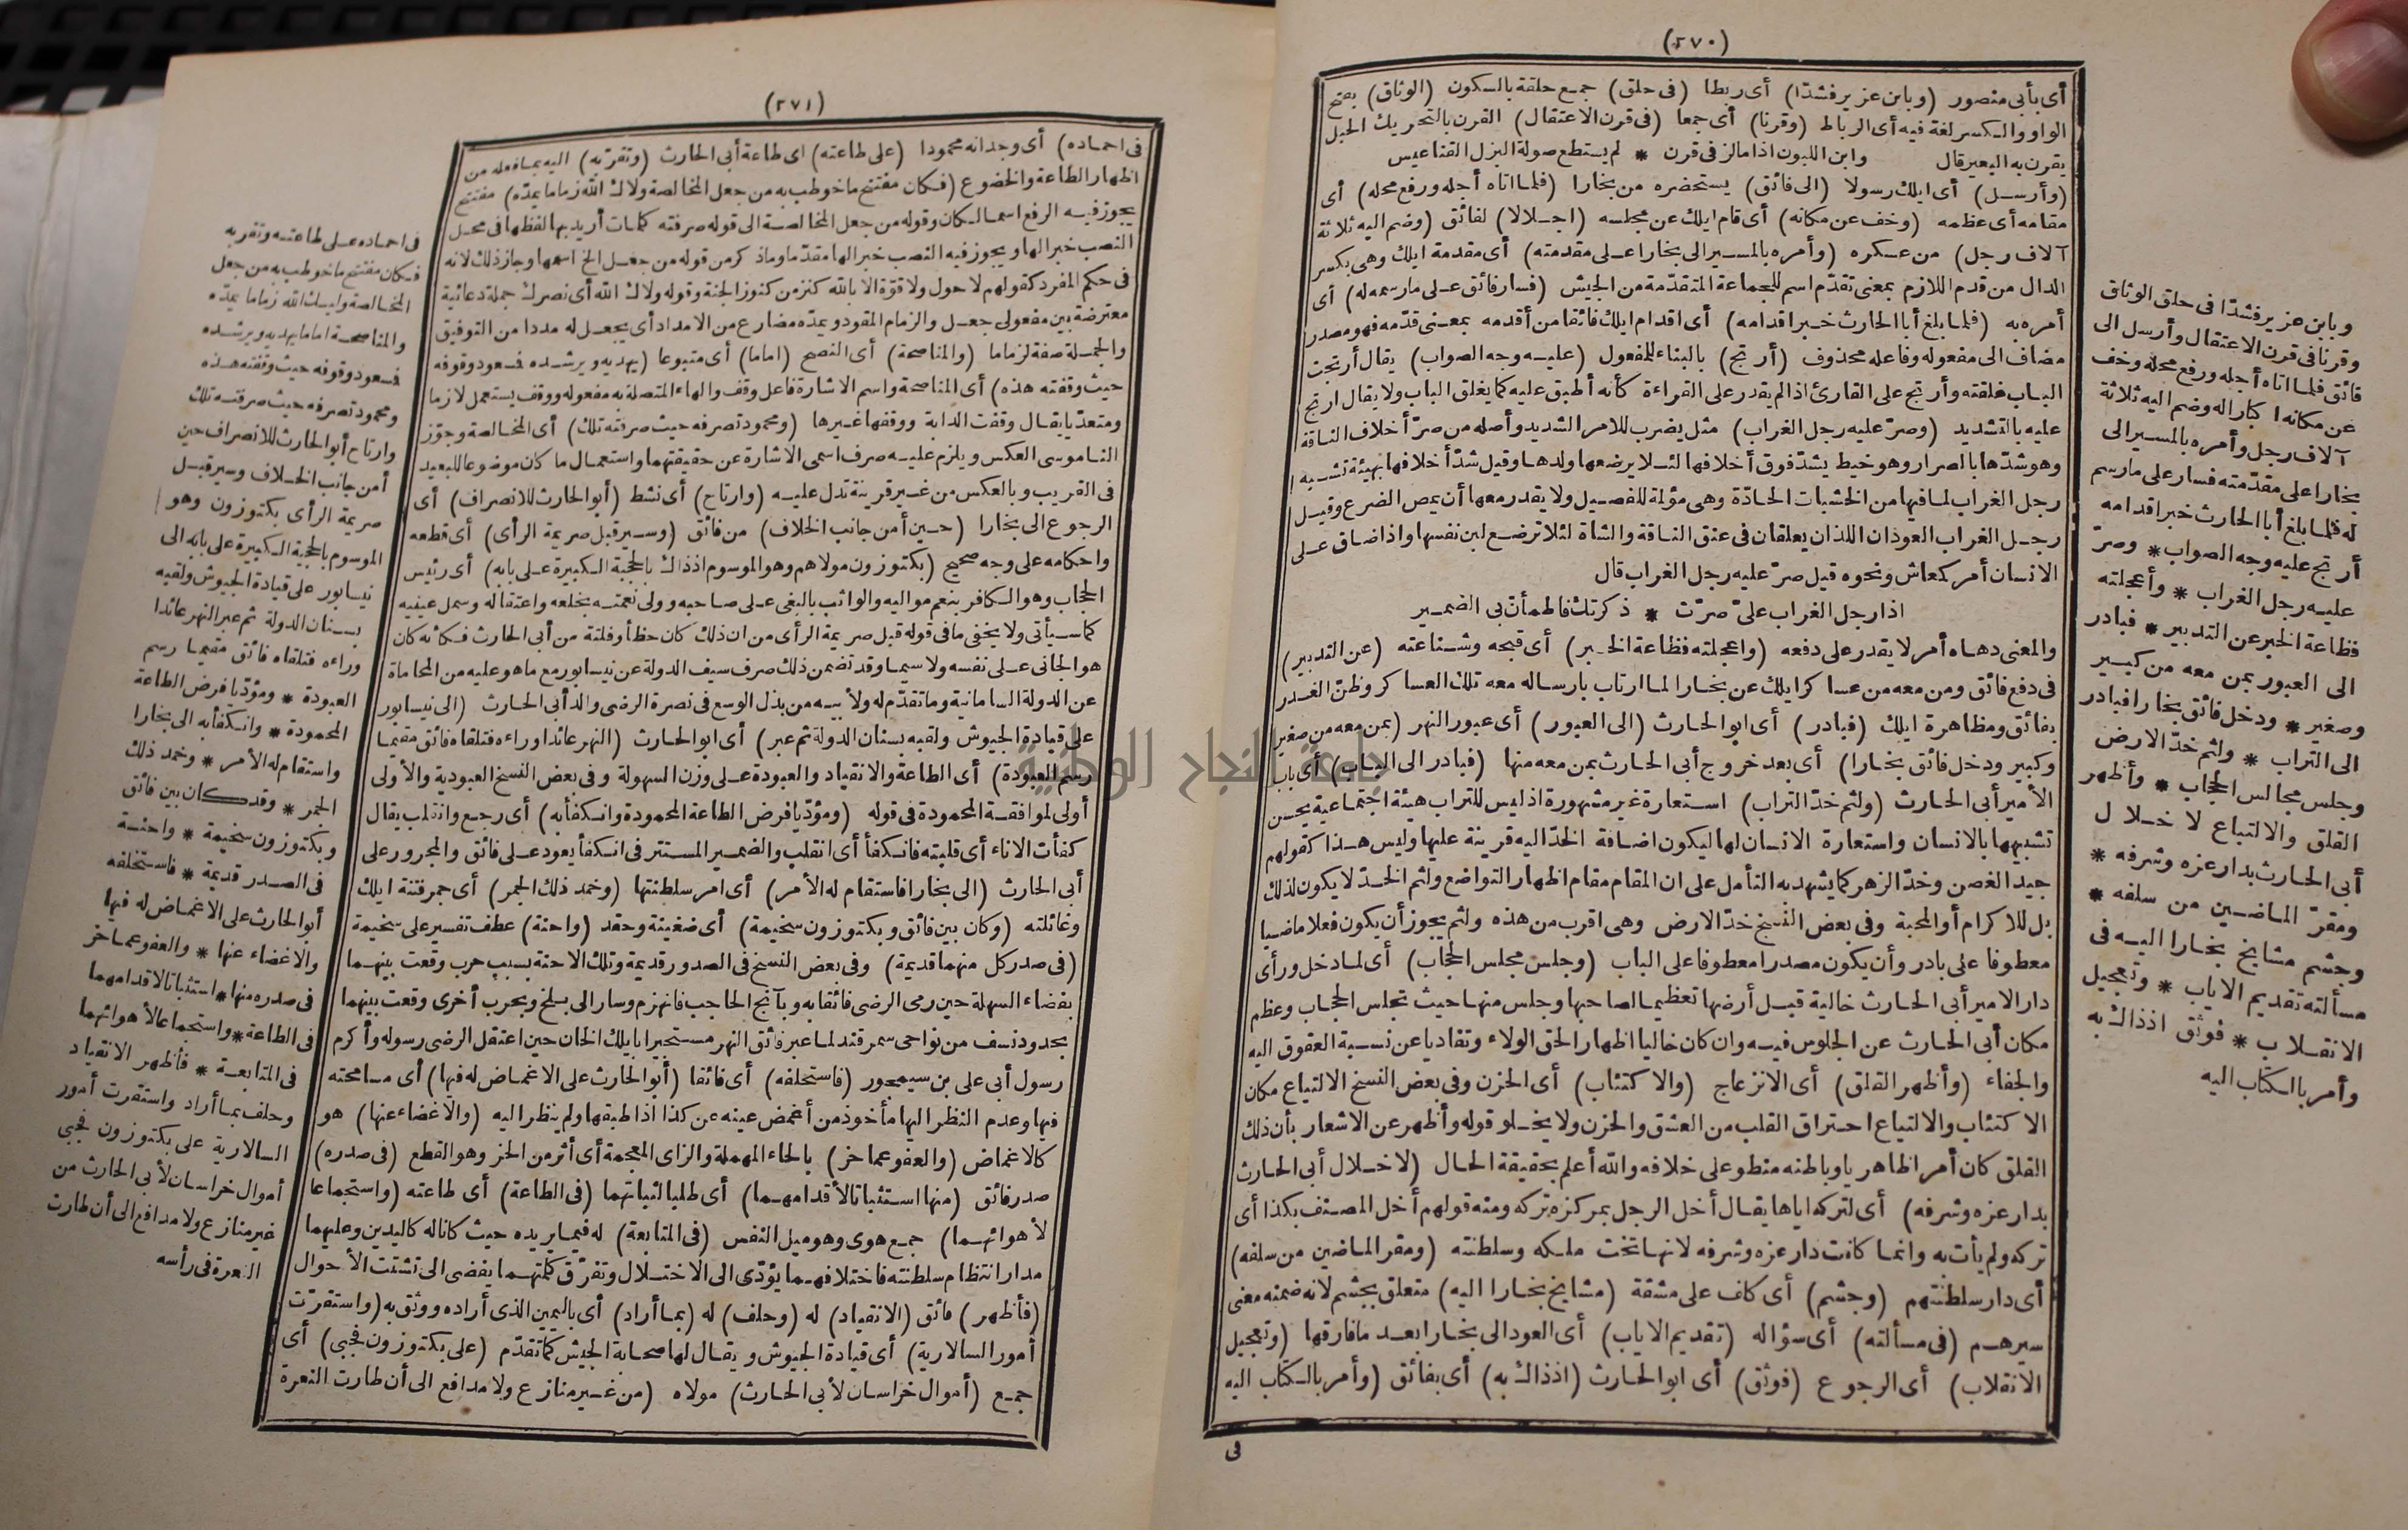 (٢٧٠)
أى بأبى منصور (وبابن عزير فشدّا) أى ربطا (فى حلق) جمع حلقة بالسكون (الوثاق) بفتح
الواو والكسر لغة فيه أى الرباط (وقرنا) أى جمعا (فى قرن الاعتقال) القرن بالتحريك الحبل
يقرن به البعير قال وابن اللبون اذا مالز فى قرن * لم يستطع صولة البزل القناعيس
(وأرسل) أى ايلك رسولا (الى فائق) يستحضره من بخارا (فلما اتاه أجله ورفع محله) أى
مقامه أى عظمه (وخف عن مكانه) أى قام ايلك عن مجلسه (اجلالا) لفائق (وضم اليه ثلاثة
آلاف رجل) من عسكره (وأمره بالمسير الى بخارا على مقدمته) أى مقدمة ايلك وهى بكسر
الدال من قدم اللازم بمعنى تقدّم اسم للجماعة المتقدّمة من الجيش (فسار فائق على ما رسمه له) أى
أمره به (فلما بلغ أبا الحارث خبر اقدامه) أى اقدام ايلك فائقا من أقدمه بمعنى قدّمه فهو مصدر
مضاف الى مفعوله وفاعله محذوف (أرتج) بالبناء للمفعول (عليه وجه الصواب) يقال أرتجت
الباب غلقته وأرتج على القارئ اذا لم يقدر على القراءة كأنه أطبق عليه كما يغلق الباب ولا يقال ارتج
عليه بالتشديد (وصرّ عليه رجل الغراب) مثل يضرب للامر الشديد وأصله من صرّ أخلاف الناقة
وهو شدّها بالصرار وهو خيط يشدّ فوق أخلافها لئلا يرضعها ولدها وقيل شدّ أخلافها بهيئة تشبه
رجل الغراب لما فيها من الخشبات الحادّة وهى مؤلمة للفصيل ولا يقدر معها أن يمص الضرع وقيل
رجل الغراب العودان اللذان يعلقان فى عنق الناقة والشاة لئلا ترضع لبن نفسها واذا ضاق على
الانسان أمر كمعاش ونحوه قيل صرّ عليه رجل الغراب قال
اذا رجل الغراب علىّ صرّت * ذكرتك فاطمأنّ بى الضمير
والمعنى دهاه أمر لا يقدر على دفعه (واعجلته فظاعة الخبر) أى قبحه وشناعته (عن التدبير)
فى دفع فائق ومن معه من عساكر ايلك عن بخارا لما ارتاب بارساله معه تلك العساكر وظنّ الغدر
بفائق ومظاهرة ايلك (فبادر) أى ابو الحارث (الى العبور) أى عبور النهر (بمن معه من صغير
وكبير ودخل فائق بخارا) أى بعد خروج أبى الحارث بمن معه منها (فبادر الى الباب) أى باب
الأمير أبى الحارث (ولثم خدّ التراب) استعارة غير مشهورة اذ ليس للتراب هيئة اجتماعية يحسن
تشبيهها بالانسان واستعارة الانسان لها ليكون اضافة الخدّ اليه قرينة عليها وليس هذا كقولهم
جيد الغصن وخدّ الزهر كما يشهد به التأمل على ان المقام مقام اظهار التواضع ولثم الخدّ لا يكون لذلك
بل للاكرام أو المحبة وفى بعض النسخ خدّ الارض وهى اقرب من هذه ولثم يجوز أن يكون فعلا ماضيا
معطوفا على بادر وأن يكون مصدرا معطوفا على الباب (وجلس مجلس الحجاب) أى لما دخل ورأى
دار الامير أبى الحارث خالية قبل أرضها تعظيما لصاحبها وجلس منها حيث تجلس الحجاب وعظم
مكان أبى الحارث عن الجلوس فيه وان كان خاليا اظهارا لحق الولاء وتفاديا عن نسبة العقوق اليه
والجفاء (وأظهر القلق) أى الانزعاج (والاكتئاب) أى الحزن وفى بعض النسخ الالتياع مكان
الاكتئاب والالتياع احتراق القلب من العشق والحزن ولا يخلو قوله وأظهر عن الاشعار بأن ذلك
القلق كان أمرا ظاهريا وباطنه منطو على خلافه والله أعلم بحقيقة الحال (لاخلال أبى الحارث
بدار عزه وشرفه) أى لتركه اياها يقال أخل الرجل بمركزه تركه ومنه قولهم أخل المصنف بكذا أى
تركه ولم يأت به وانما كانت دار عزه وشرفه لانها تخت ملكه وسلطنته (ومقر الماضين من سلفه)
أى دار سلطنتهم (وجشم) أى كاف على مشقة (مشايخ بخارا اليه) متعلق بجشم لانه ضمنه معنى
سيرهم (فى مسألته) أى سؤاله (تقديم الاياب) أى العود الى بخارا بعد ما فارقها (وتعجيل
الانقلاب) أى الرجوع (فوثق) أى ابو الحارث (اذ ذاك به) أى بفائق (وأمر بالكتاب اليه
فى
وبابن عزير فشدّا فى حلق الوثاق
وقرنا فى قرن الاعتقال وأرسل الى
فائق فلما اتاه أجله ورفع محله وخف
عن مكانه اكبارا له وضم اليه ثلاثة
آلاف رجل وأمره بالمسير الى
بخارا على مقدّمته فسار على ما رسم
له فلما بلغ أبا الحارث خبر اقدامه
أرتج عليه وجه الصواب * وصرّ
عليه رجل الغراب * وأعجلته
فظاعة الخبر عن التدبير * فبادر
الى العبور بمن معه من كبير
وصغير * ودخل فائق بخارا فبادر
الى التراب * ولثم خدّ الارض
وجلس مجالس الحجاب * وأظهر
القلق والالتياع لاخلال
أبى الحارث بدار عزه وشرفه *
ومقرّ الماضين من سلفه *
وجشم مشايخ بخارا اليه فى
مسألته تقديم الاياب * وتعجيل
الانقلاب * فوثق اذ ذاك به
وأمر بالكتاب اليه
(٢٧١)
فى احماده) أى وجدانه محمودا (على طاعته) اى طاعة أبى الحارث (وتقرّبه) اليه بما فعله من
اظهار الطاعة والخضوع (فكان مفتتح ما خوطب به من جعل المخالصة ولاك الله زماما يمدّه) مفتتح
يجوز فيه الرفع اسما لكان وقوله من جعل المخالصة الى قوله صرفته كلمات أريد بها لفظها فى محل
النصب خبرا لها ويجوز فيه النصب خبرا لها مقدّما وما ذكر من قوله من جعل الخ اسمها وجاز ذلك لانه
فى حكم المفرد كقولهم لا حول ولا قوّة الا بالله كنز من كنوز الجنة وقوله ولاك الله أى نصرك جملة دعائية
معترضة بين مفعولى جعل والزمام المقود ويمدّه مضارع من الامداد أى يجعل له مددا من التوفيق
والجملة صفة لزماما (والمناصحة) أى النصح (اماما) أى متبوعا (يهديه ويرشده فسعود وقوفه
حيث وقفته هذه) أى المناصحة واسم الاشارة فاعل وقف والهاء المتصلة به مفعوله ووقف يستعمل لازما
ومتعدّيا يقال وقفت الدابة ووقفها غيرها (ومحمود تصرفه حيث صرفته تلك) أى المخالصة وجوّز
الناموسى العكس ويلزم عليه صرف اسمى الاشارة عن حقيقتهما واستعمال ما كان موضوعا للبعيد
فى القريب وبالعكس من غير قرينة تدل عليه (وارتاح) أى نشط (أبو الحارث للانصراف) أى
الرجوع الى بخارا (حين أمن جانب الخلاف) من فائق (وسير قبل صريمة الرأى) أى قطعه
واحكامه على وجه صحيح (بكتوزون مولاهم وهو الموسوم اذ ذاك بالحجبة الكبيرة على بابه) أى رئيس
الحجاب وهو الكافر بنعم مواليه والواثب بالبغى على صاحبه وولى نعمته بخلعه واعتقاله وسمل عينيه
كما سيأتى ولا يخفى ما فى قوله قبل صريمة الرأى من ان ذلك كان خطأ وفلتة من أبى الحارث فكأنه كان
هو الجانى على نفسه ولا سيما وقد تضمن ذلك صرف سيف الدولة عن نيسابور مع ما هو عليه من المحاماة
عن الدولة السامانية وما تقدّم له ولأبيه من بذل الوسع فى نصرة الرضى والد أبى الحارث (الى نيسابور
على قيادة الجيوش ولقبه بسنان الدولة ثم عبر) أى ابو الحارث (النهر عائدا وراءه فتلقاه فائق مقيما
رسم العبودة) أى الطاعة والانقياد والعبودة على وزن السهولة وفى بعض النسخ العبودية والأولى
أولى لموافقة المحمودة فى قوله (ومؤدّيا فرض الطاعة المحمودة وانكفأ به) أى رجع وانقلب يقال
كفأت الاناء أى قلبته فانكفأ أى انقلب والضمير المستتر فى انكفأ يعود على فائق والمجرور على
أبى الحارث (الى بخارا فاستقام له الأمر) أى امر سلطنتها (وخمد ذلك الجمر) أى جمر فتنة ايلك
وغائلته (وكان بين فائق وبكتوزون سخيمة) أى ضغينة وحقد (واحنة) عطف تفسير على سخيمة
(فى صدر كل منهما قديمة) وفى بعض النسخ فى الصدور قديمة وتلك الاحنة بسبب حرب وقعت بينهما
بفضاء السهلة حين رمى الرضى فائقا به وبآنج الحاجب فانهزم وسار الى بلخ وبحرب أخرى وقعت بينهما
بحدود نسف من نواحى سمرقند لما عبر فائق النهر مستجيرا بايلك الخان حين اعتقل الرضى رسوله وأكرم
رسول أبى على بن سيمجور (فاستخلفه) أى فائقا (أبو الحارث على الاغماض له فيها) أى مسامحته
فيها وعدم النظر اليها مأخوذ من أغمض عينه عن كذا اذا طبقها ولم ينظر اليه (والاغضاء عنها) هو
كالاغماض (والعفو عما حز) بالحاء المهملة والزاى المعجمة أى أثر من الحز وهو القطع (فى صدره)
صدر فائق (منها استثباتا لأقدامهما) أى طلبا لثباتهما (فى الطاعة) أى طاعته (واستجماعا
لأهوائهما) جمع هوى وهو ميل النفس (فى المتابعة) له فيما يريده حيث كانا له كاليدين وعليهما
مدار انتظام سلطنته فاختلافهما يؤدّى الى الاختلال وتفرّق كلمتهما يفضى الى تشتت الأحوال
(فأظهر) فائق (الانقياد) له (وحلف) له (بما أراد) أى باليمين الذى أراده ووثق به (واستقرّت
أمور السالارية) أى قيادة الجيوش ويقال لها صحابة الجيش كما تقدّم (على بكتوزون فجبى) أى
جمع (أموال خراسان لأبى الحارث) مولاه (من غير منازع ولا مدافع الى أن طارت النعرة
فى احماده على طاعته وتقربه
فكان مفتتح ما خوطب به من جعل
المخالصة وليك الله زماما يمدّه
والمناصحة اماما يهديه ويرشده
فسعود وقوفه حيث وقفته هذه
ومحمود تصرفه حيث صرفته تلك
وارتاح أبو الحارث للانصراف حين
أمن جانب الخلاف وسير قبل
صريمة الرأى بكتوزون وهو
الموسوم بالحجبة الكبيرة على بابه الى
نيسابور على قيادة الجيوش ولقبه
بسنان الدولة ثم عبر النهر عائدا
وراءه فتلقاه فائق مقيما رسم
العبودة * ومؤدّيا فرض الطاعة
المحمودة * وانكفأ به الى بخارا
واستقام له الأمر * وخمد ذلك
الجمر * وقد كان بين فائق
وبكتوزون سخيمة * واحنة
فى الصدر قديمة * فاستخلفه
أبو الحارث على الاغماض له فيها
والاغضاء عنها * والعفو عما حز
فى صدره منها * استثباتا لاقدامهما
فى الطاعة * واستجماعا لأهوائهما
فى المتابعة * فأظهر الانقياد
وحلف بما أراد واستقرت أمور
السالارية على بكتوزون فجبى
أموال خراسان لأبى الحارث من
غير منازع ولا مدافع الى أن طارت
النعرة فى رأسه
جامعة النجاح الوطنية